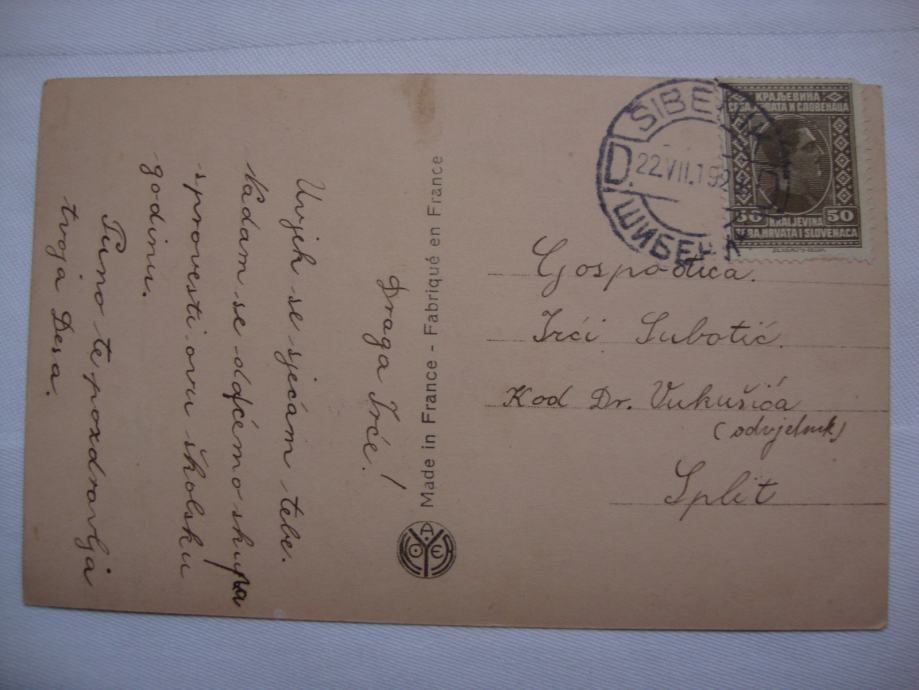 Draga Irće!
Uvjek se sjećam tebe.
Nadam se da ćemo skupa
sprovesti ovu školsku
godinu.
Puno te pozdravlja
tvoja Desa.
Made in France - Fabriqué en France
ŠIBENIK
D.
22.VII.192
ШИБЕНИК
КРАЉЕВИНА
СРБА, ХРВАТА И СЛОВЕНАЦА
50 50
KRALJEVINA
SRBA, HRVATA I SLOVENACA
Gospodica.
Irći Subotić.
Kod Dr. Vukušića
(odvjetnik)
Split